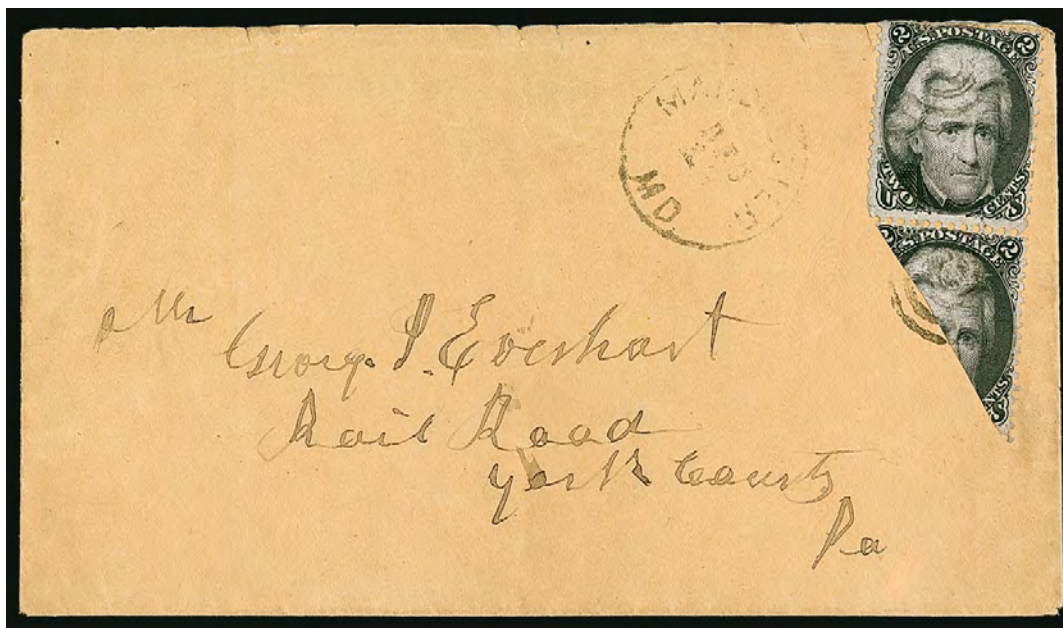 2 U.S. POSTAGE 2
TWO CENTS
U S
MD
.S. POSTAGE 2
Mr Georg. I. Everhart
Rail Road
York County
Pa